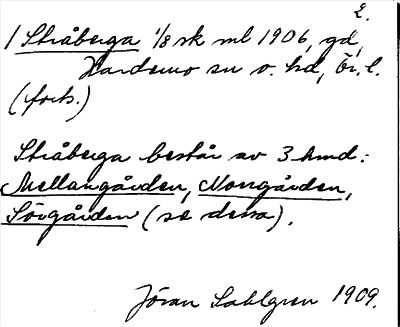 2.
/ Stråberga 1/8 sk ml 1906, gd,
Hardemo sn o. hd, Ör. l.
(forts.)
Stråberga består av 3 hmd:
Mellangården, Norrgården,
Sörgården (se dessa).
Jöran Sahlgren 1909.